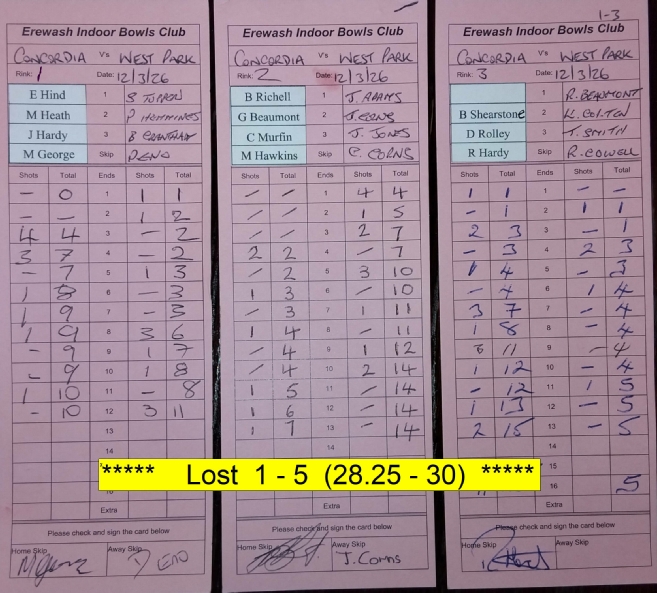 1-3
Erewash Indoor Bowls Club
CONCORDIA Vs WEST PARK
Rink: 1 Date: 12/3/26
E Hind 1
M Heath 2 P HEMMINGS
J Hardy 3
M George Skip DENO
Shots Total Ends Shots Total
— 0 1 1 1
— — 2 1 2
4 4 3 — 2
3 7 4 — 2
- 7 5 1 3
1 8 6 — 3
1 9 7 - 3
1 9 8 3 6
- 9 9 1 7
- 9 10 1 8
1 10 11 — 8
- 10 12 3 11
13
14
Extra
Please check and sign the card below
Home Skip Away Skip
DENO
Erewash Indoor Bowls Club
CONCORDIA Vs WEST PARK
Rink: 2 Date: 12/3/26
B Richell 1 J. ADAMS
G Beaumont 2 J. CORNS
C Murfin 3 J. JONES
M Hawkins Skip C. CORNS
Shots Total Ends Shots Total
/ / 1 4 4
/ / 2 1 5
/ / 3 2 7
2 2 4 — 7
/ 2 5 3 10
1 3 6 — 10
- 3 7 1 11
1 4 8 — 11
— 4 9 1 12
— 4 10 2 14
1 5 11 — 14
1 6 12 — 14
1 7 13 — 14
14
Extra
Please check and sign the card below
Home Skip Away Skip
J. Corns
Erewash Indoor Bowls Club
CONCORDIA Vs WEST PARK
Rink: 3 Date: 12/3/26
1 R. BEAUMONT
B Shearstone 2 K. COLTON
D Rolley 3 T. SMITH
R Hardy Skip R. COWELL
Shots Total Ends Shots Total
1 1 1 — —
- 1 2 1 1
2 3 3 — 1
- 3 4 2 3
1 4 5 — 3
- 4 6 1 4
3 7 7 — 4
1 8 8 — 4
3 11 9 — 4
1 12 10 — 4
- 12 11 1 5
1 13 12 — 5
2 15 13 — 5
14
15
16 5
Extra
Please check and sign the card below
Home Skip Away Skip
***** Lost 1 - 5 (28.25 - 30) *****